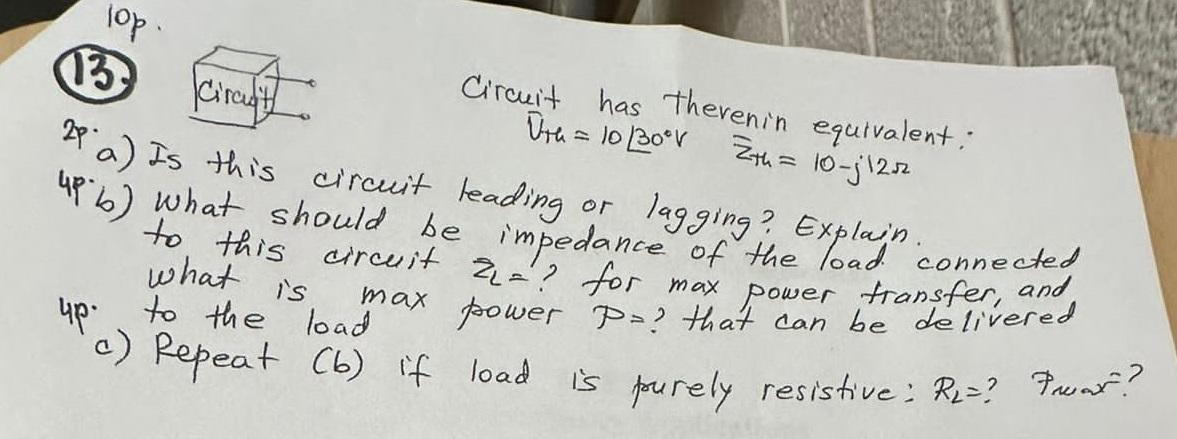 10p.
13.
Circuit
Circuit has Thevenin equivalent:
V̄Th = 10∠30° V Z̄Th = 10-j12Ω
2p. a) Is this circuit leading or lagging? Explain.
4p. b) What should be impedance of the load connected
to this circuit Z̄L=? for max power transfer, and
what is max power P=? that can be delivered
to the load
4p. c) Repeat (b) if load is purely resistive: RL=? Pmax=?